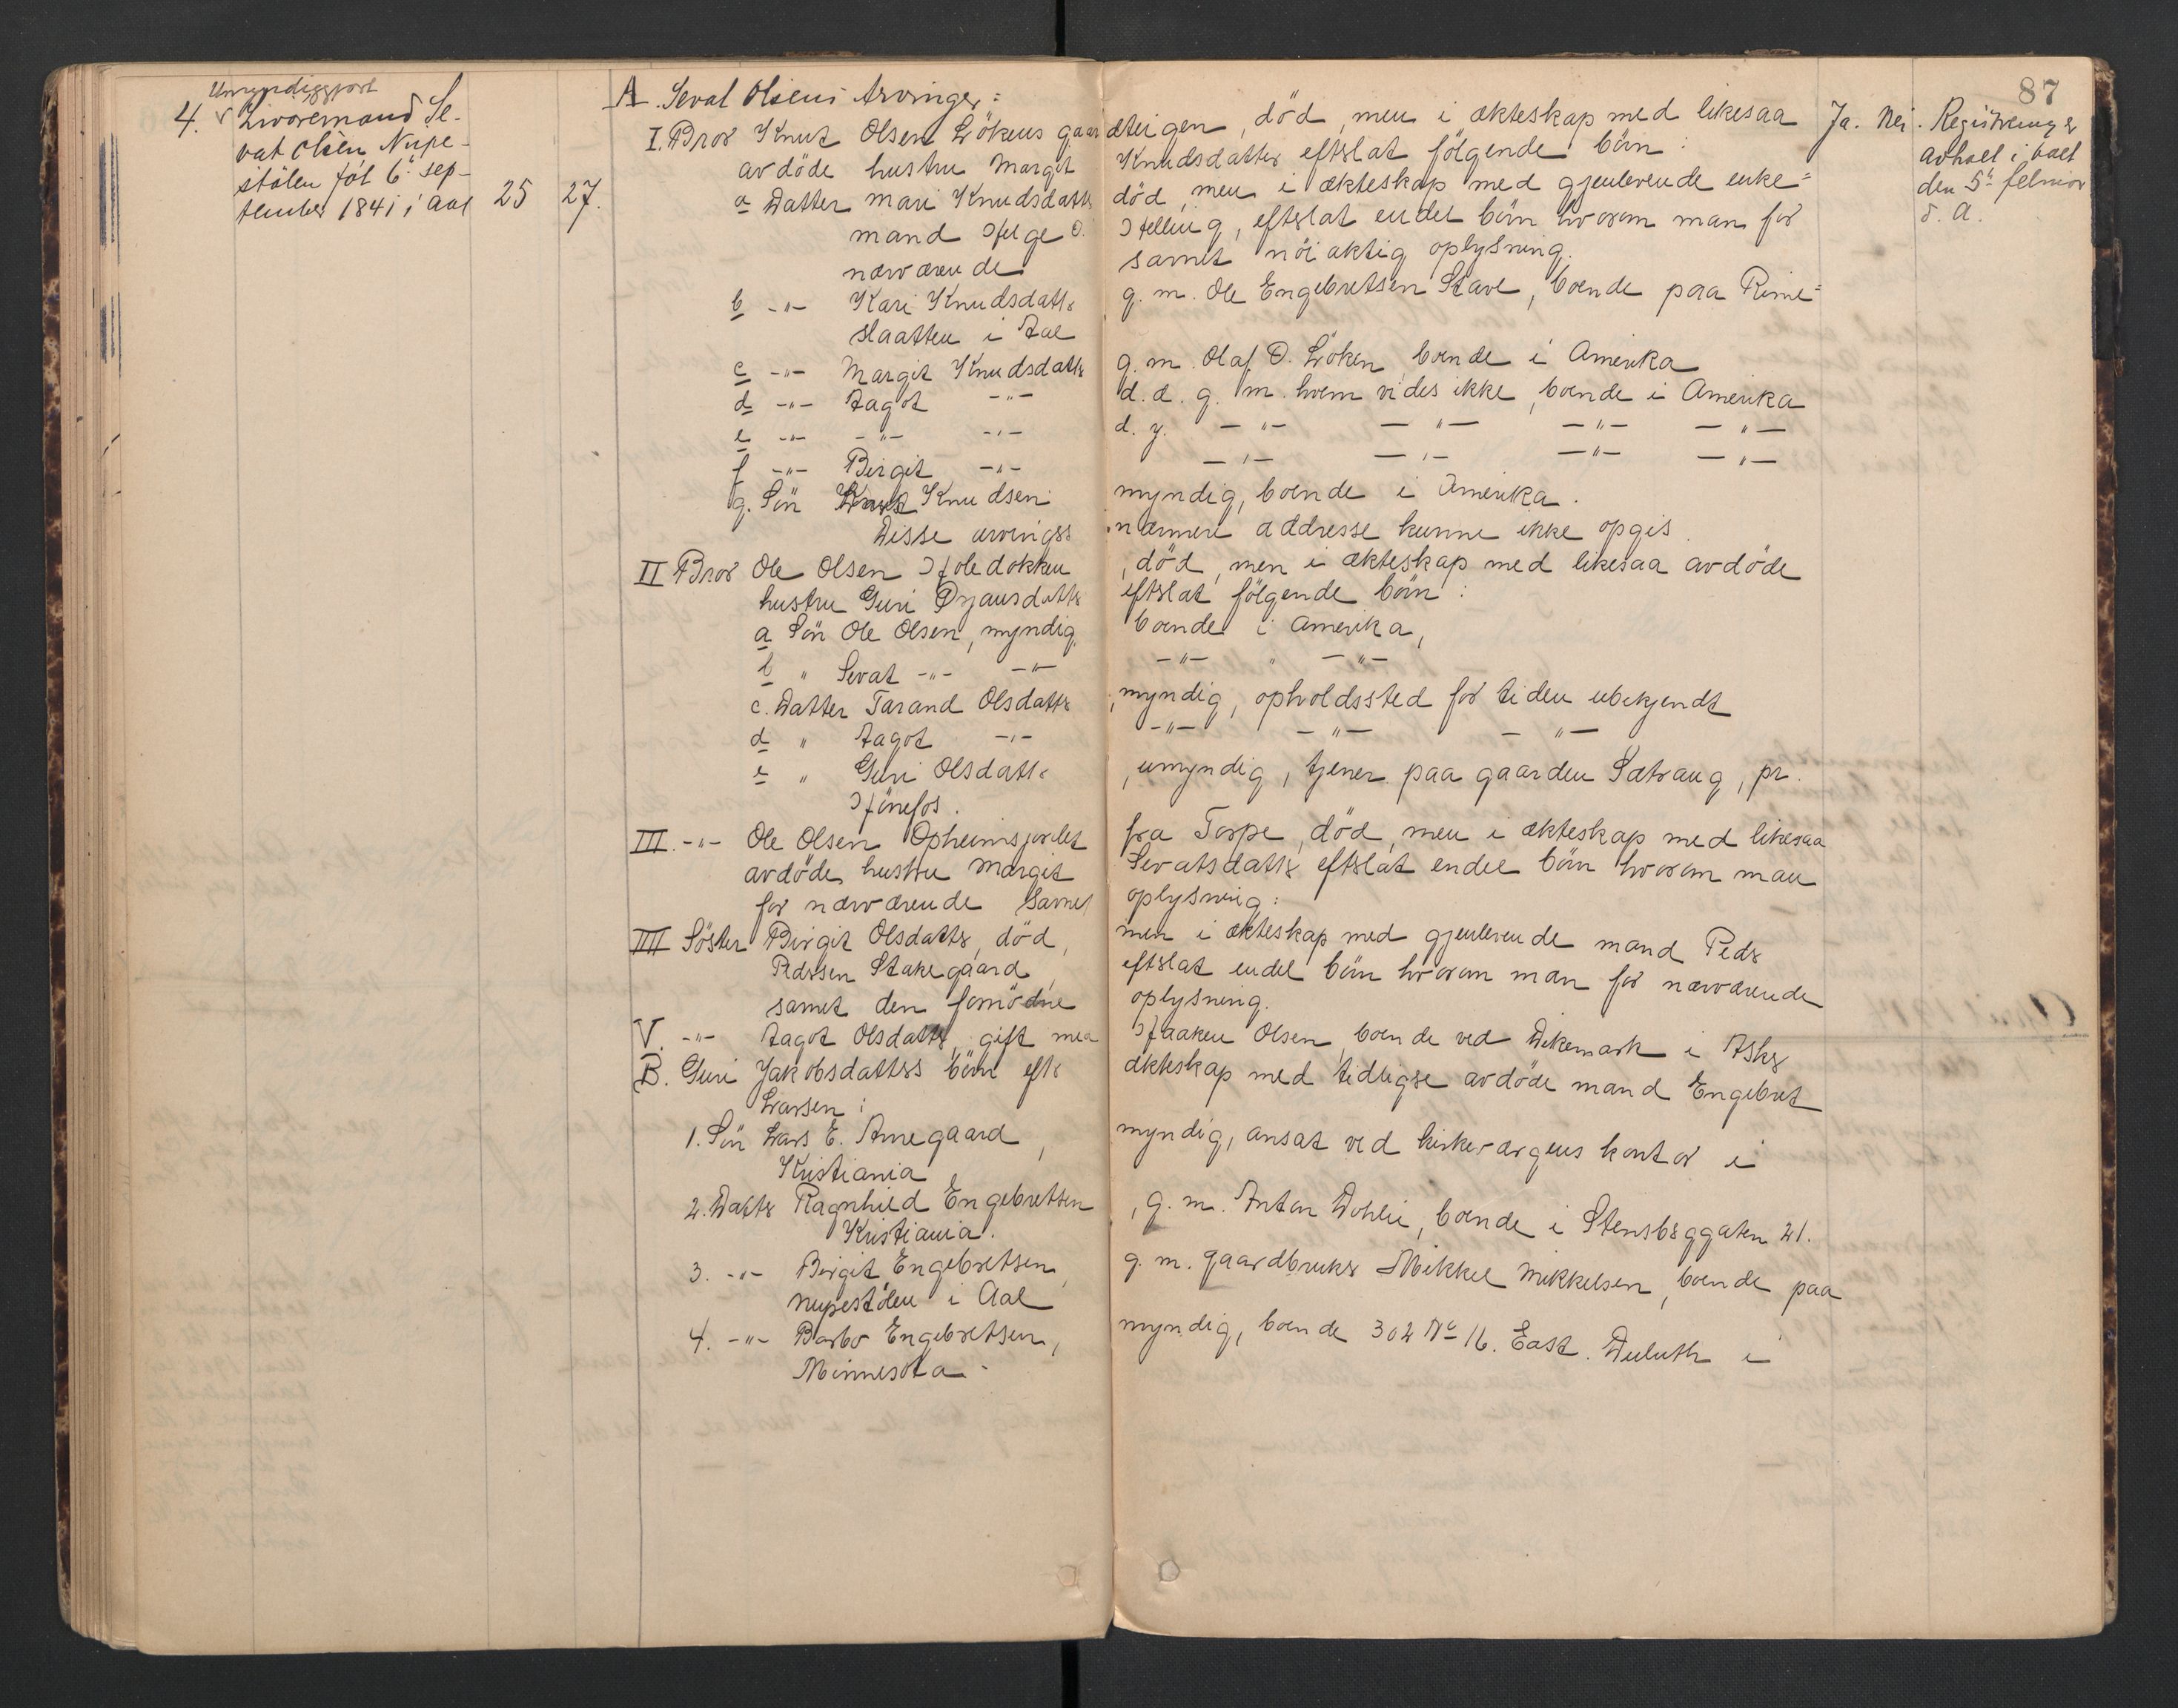 87
Umyndiggjort
4. Livøremand Se-
vat Olsen Nupe-
stølen føt 6te sep-
tember 1841 i Aal 25 27.
A. Sevat Olsens Arvinger:
I. Bror Knut Olsen Løkens gaardeiegen, død, men i ekteskap med likesaa
avdøde hustru Margit Knudsdatter efterlat følgende børn:
a Datter Mari Knudsdatter død, men i ekteskap med gjenlevende enke=
mand Helge O. Helling, efterlat endel børn hvorom man for
nærværende savnet nøiaktig oplysning.
b -"- Kari Knudsdatter g. m. Ole Engebretsen Stave, boende paa Rime=
slaatten i Aal
c -"- Margit Knudsdatter g. m. Olaf O. Løken, boende i Amerika
d -"- Aagot -"- d. e. g. m. hvem vides ikke, boende i Amerika
e -"- -"- -"- d. y. -"- -"- -"- -"-
f -"- Birgit -"- -"- -"- -"- -"-
g. Søn Knut Knudsen myndig, boende i Amerika.
Disse arvingers nærmere addresse kunne ikke opgis.
II Bror Ole Olsen Holedokken, død, men i ekteskap med likesaa avdøde
hustru Guri Ørjansdatter efterlat følgende børn:
a Søn Ole Olsen, myndig, boende i Amerika,
b " Sevat -"- -"- -"- " -"-
c. Datter Tarand Olsdatter, myndig, opholdssted for tiden ubekjendt
d " Aagot -"- -"- -"- -"-
e " Guri Olsdatter, umyndig, tjener paa gaarden Sætrang, pr.
Hønefos.
III. -"- Ole Olsen Opheimsjordet fra Torpe, død, men i ekteskap med likesaa
avdøde hustru Margit Sevatsdatter efterlat endel børn hvorom man
for nærværende savnet oplysning:
IIII Søster Birgit Olsdatter, død, men i ekteskap med gjenlevende mand Peder
Pedersen Stakegaard, efterlat endel børn hvorom man for nærværende
savnet den fornødne oplysning.
V. -"- Aagot Olsdatter, gift med Haaken Olsen, boende ved Dikemark i Asker
B. Guri Jakobsdatters børn efter ekteskap med tidligere avdøde mand Engebret
Larsen:
1. Søn Lars E. Arnegaard, myndig, ansat ved kirkevergens kontor i
Kristiania
2. Datter Ragnhild Engebretsen, g. m. Anton Dohlie, boende i Stensberggaten 21.
Kristiania.
3. -"- Birgit Engebretsen, g. m. gaardbruker Mikkel Mikkelsen, boende paa
Nupestølen i Aal
4. -"- Barbo Engebretsen, myndig, boende 302 No 16. East. Duluth i
Minnesota.
Ja. Nei. Registrering er
avholt i boet
den 5te februar
d. A.